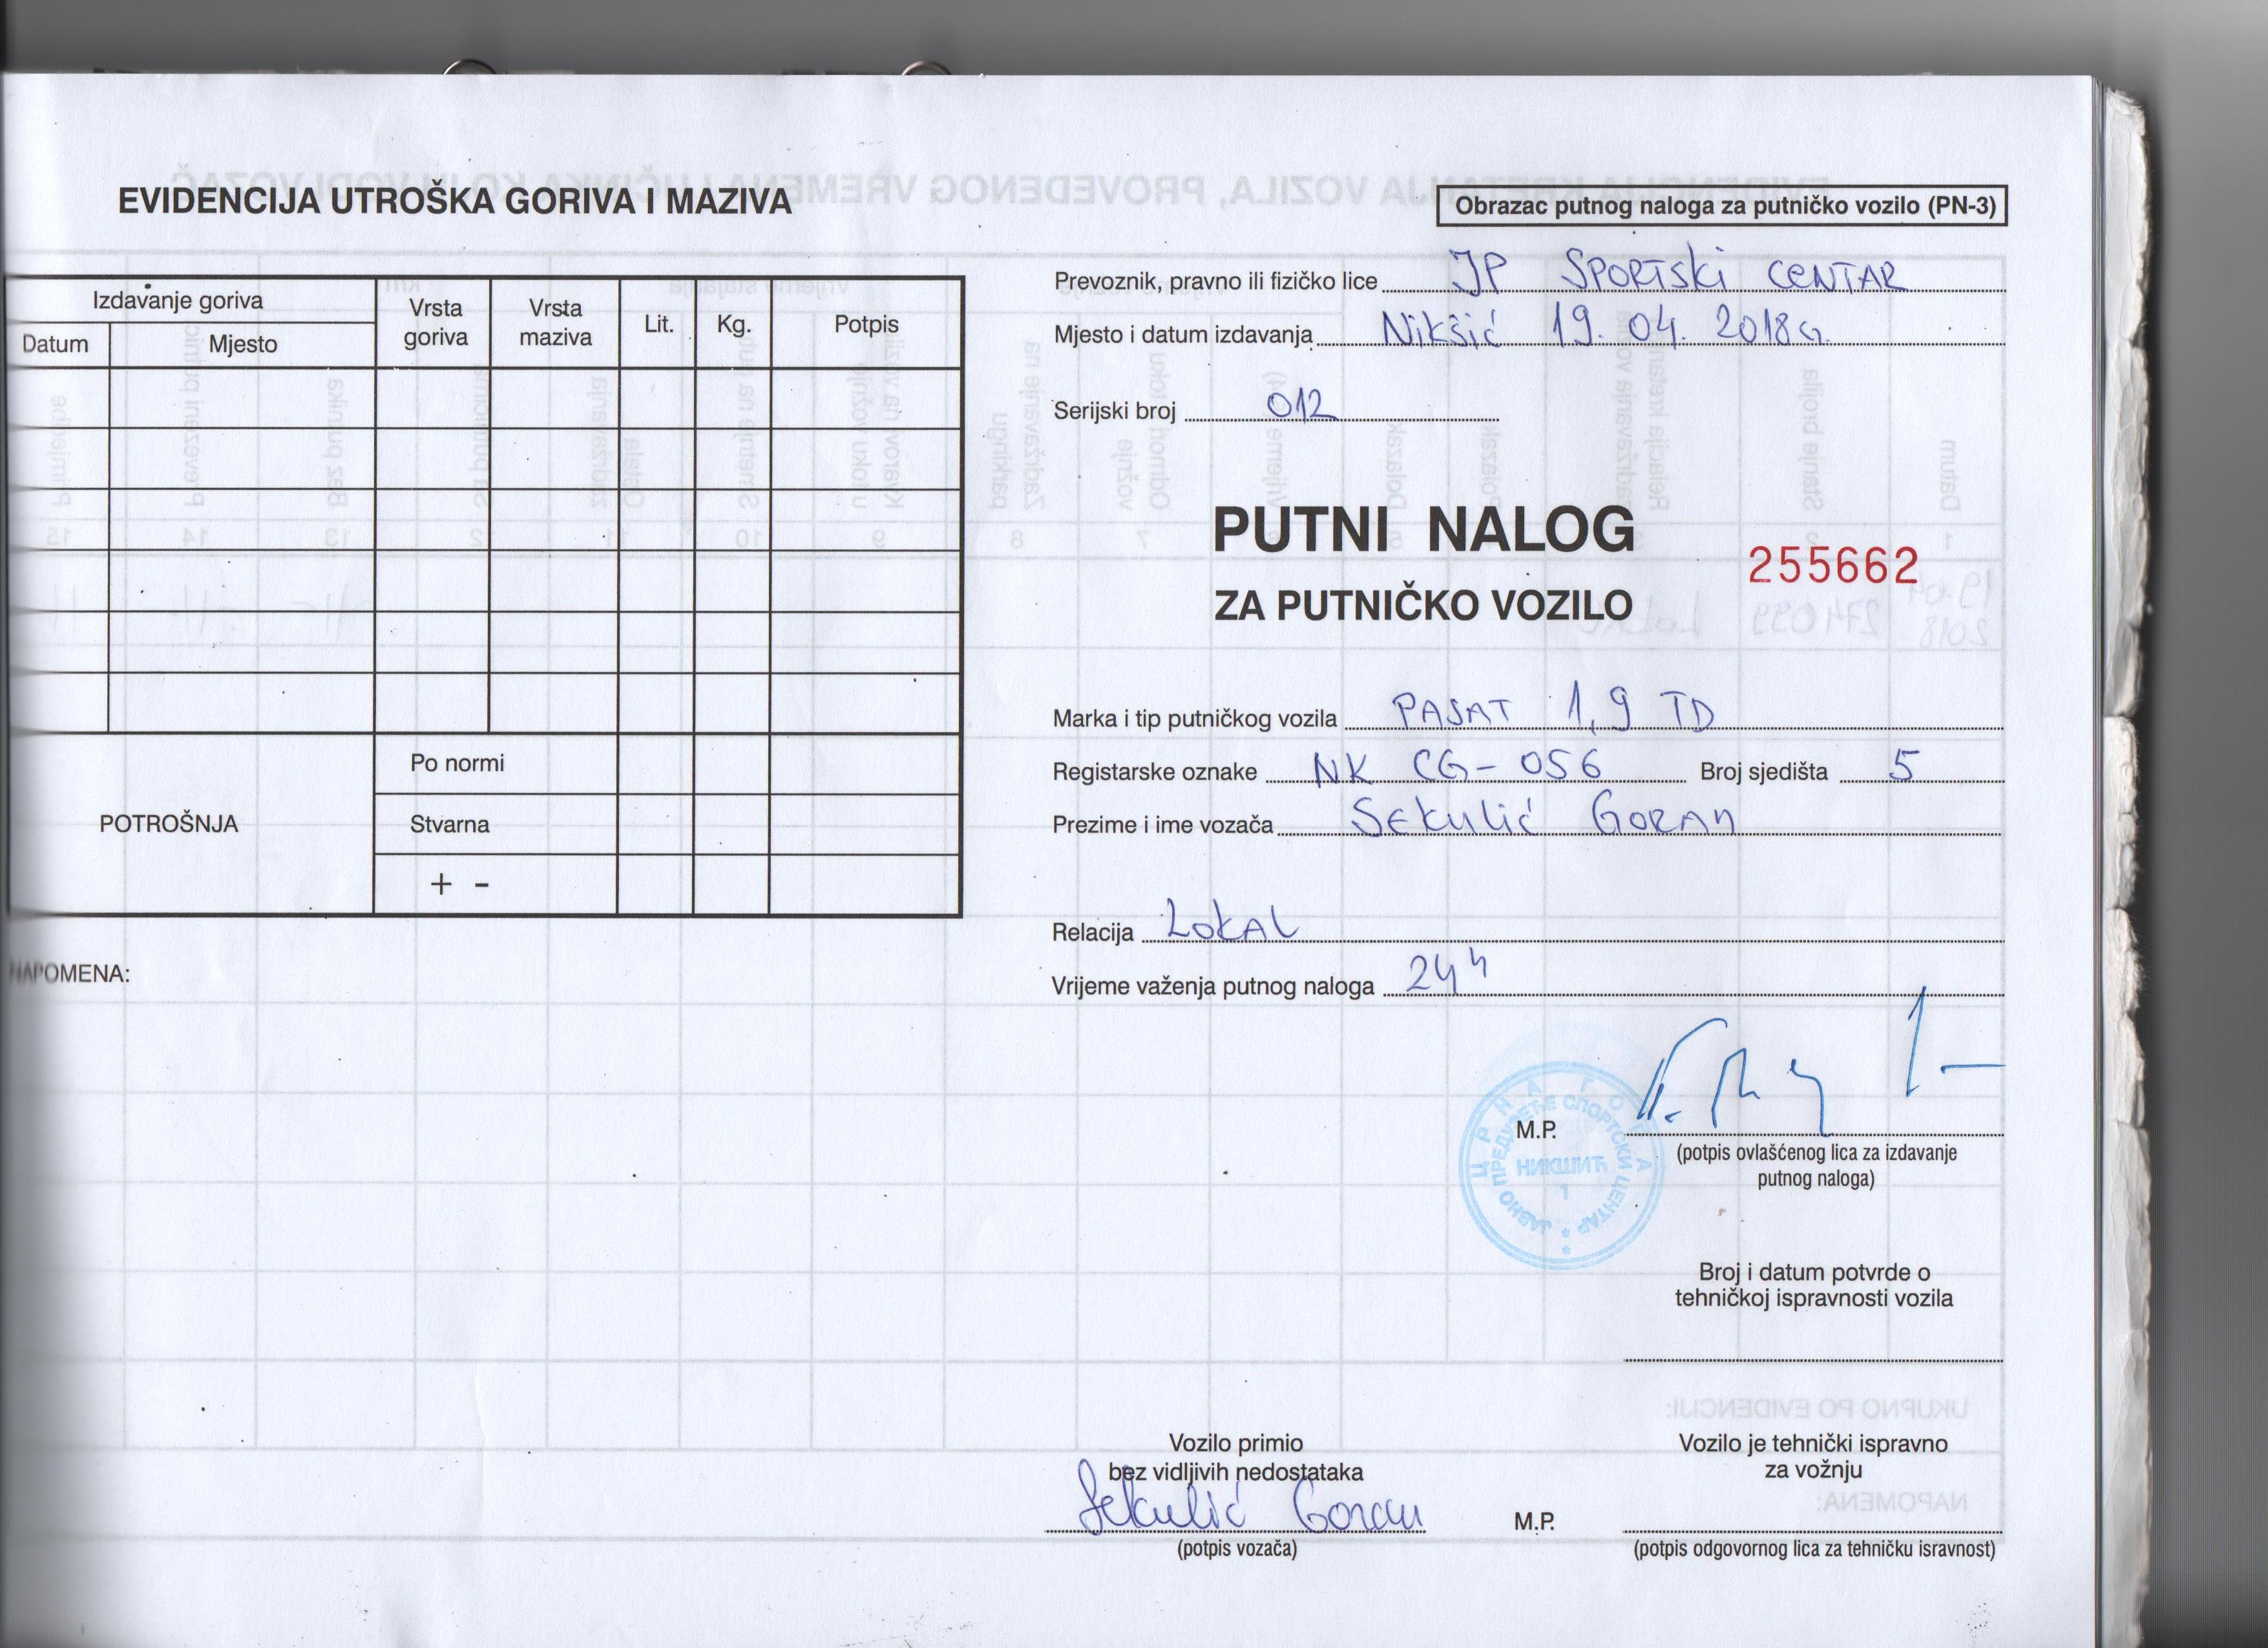 EVIDENCIJA UTROŠKA GORIVA I MAZIVA
Izdavanje goriva
Datum
Mjesto
Vrsta goriva
Vrsta maziva
Lit.
Kg.
Potpis
POTROŠNJA
Po normi
Stvarna
+ -
NAPOMENA:
Obrazac putnog naloga za putničko vozilo (PN-3)
Prevoznik, pravno ili fizičko lice JP SPORTSKI CENTAR
Mjesto i datum izdavanja Nikšić 19. 04. 2018G.
Serijski broj 012
PUTNI NALOG
255662
ZA PUTNIČKO VOZILO
Marka i tip putničkog vozila PASAT 1,9 TD
Registarske oznake NK CG-056 Broj sjedišta 5
Prezime i ime vozača Sekulić Goran
Relacija LOKAL
Vrijeme važenja putnog naloga 24 h
M.P.
ЦРНА ГОРА
ЈАВНО ПРЕДУЗЕЋЕ СПОРТСКИ ЦЕНТАР
НИКШИЋ
1
(potpis ovlašćenog lica za izdavanje
putnog naloga)
Broj i datum potvrde o
tehničkoj ispravnosti vozila
Vozilo primio
bez vidljivih nedostataka
Sekulić Goran
(potpis vozača)
Vozilo je tehnički ispravno
za vožnju
M.P.
(potpis odgovornog lica za tehničku isravnost)